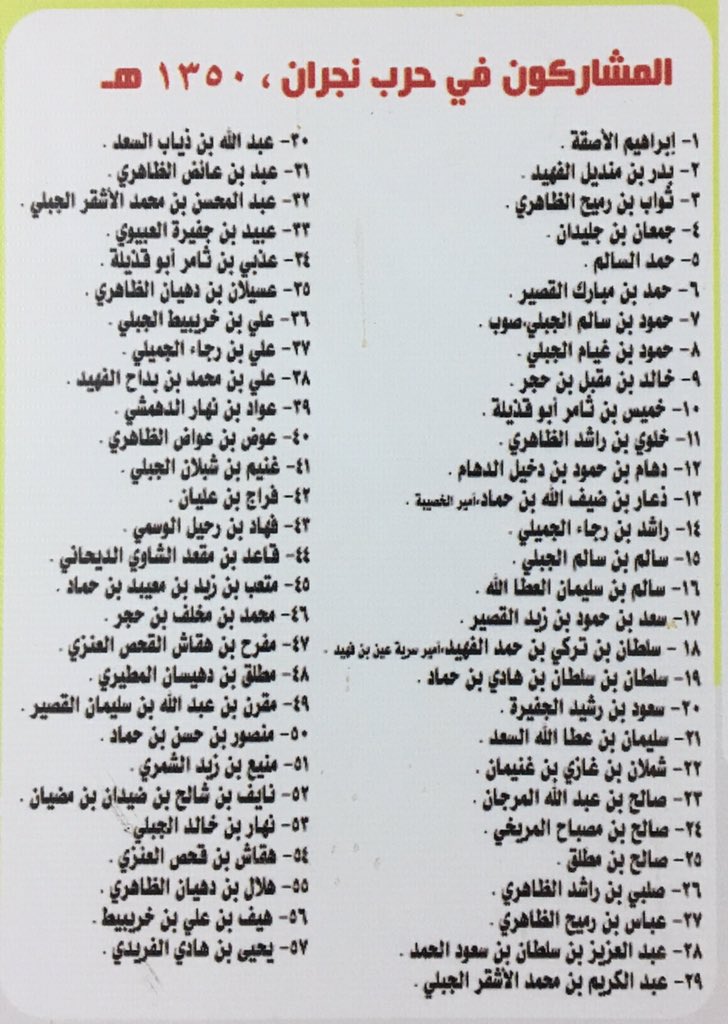 المشاركون في حرب نجران ، ١٣٥٠ هـ
١- إبراهيم الأصقة .
٢- بدر بن منديل الفهيد .
٣- ثواب بن رميح الظاهري .
٤- جمعان بن جليدان .
٥- حمد السالم .
٦- حمد بن مبارك القصير .
٧- حمود بن سالم الجبلي،صوب .
٨- حمود بن غيام الجبلي .
٩- خالد بن مقبل بن حجر .
١٠- خميس بن ثامر أبو قذيلة .
١١- خلوي بن راشد الظاهري .
١٢- دهام بن حمود بن دخيل الدهام .
١٣- ذعار بن ضيف الله بن حماد،أمير الخصيبة .
١٤- راشد بن رجاء الجميلي .
١٥- سالم بن سالم الجبلي .
١٦- سالم بن سليمان العطا الله .
١٧- سعد بن حمود بن زيد القصير .
١٨ - سلطان بن تركي بن حمد الفهيد،أمير سرية عين بن فهيد .
١٩- سلطان بن سلطان بن هادي بن حماد .
٢٠- سعود بن رشيد الجفيرة .
٢١- سليمان بن عطا الله السعد .
٢٢- شملان بن غازي بن غنيمان .
٢٣- صالح بن عبد الله المرجان .
٢٤- صالح بن مصباح المريخي .
٢٥- صالح بن مطلق .
٢٦- صلبي بن راشد الظاهري .
٢٧- عباس بن رميح الظاهري .
٢٨- عبد العزيز بن سلطان بن سعود الحمد .
٢٩- عبد الكريم بن محمد الأشقر الجبلي .
٣٠- عبد الله بن ذياب السعد .
٣١- عبد بن عائض الظاهري .
٣٢- عبد المحسن بن محمد الأشقر الجبلي .
٣٣- عبيد بن جفيرة العبيوي .
٣٤- عذبي بن ثامر أبو قذيلة .
٣٥- عسيلان بن دهيان الظاهري .
٣٦- علي بن خريبيط الجبلي .
٣٧- علي بن رجاء الجميلي .
٣٨- علي بن محمد بن بداح الفهيد .
٣٩- عواد بن نهار الدهمشي .
٤٠- عوض بن عواض الظاهري .
٤١- غنيم بن شبلان الجبلي .
٤٢- فراج بن عليان .
٤٣- فهاد بن رحيل الوسمي .
٤٤- قاعد بن مقعد الشاوي الديحاني .
٤٥- متعب بن زيد بن معيبد بن حماد .
٤٦- محمد بن مخلف بن حجر .
٤٧- مفرح بن هقاش القحص العنزي .
٤٨- مطلق بن دهيسان المطيري .
٤٩- مقرن بن عبد الله بن سليمان القصير .
٥٠- منصور بن حسن بن حماد .
٥١- منيع بن زيد الشمري .
٥٢- نايف بن شالح بن ضيدان بن مضيان .
٥٣- نهار بن خالد الجبلي .
٥٤- هقاش بن قحص العنزي .
٥٥- هلال بن دهيان الظاهري .
٥٦- هيف بن علي بن خريبيط .
٥٧- يحيى بن هادي الفريدي .